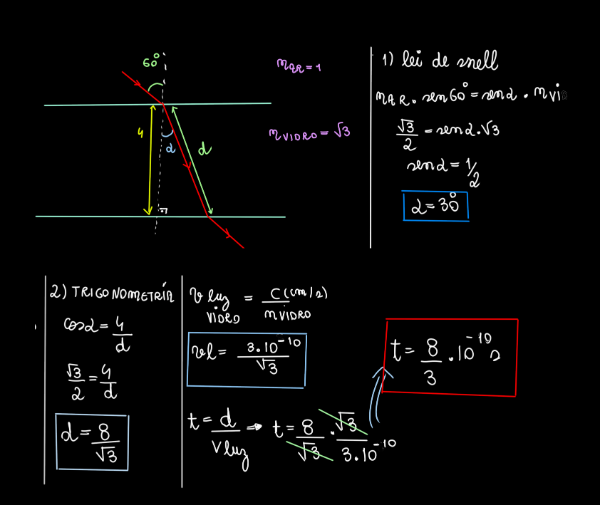 60°
n_AR = 1
4
α
d
n_VIDRO = √3
1) lei de snell
n_AR . sen60° = senα . n_VI
√3/2 = senα . √3
senα = 1/2
α = 30°
2) TRIGONOMETRÍA
cosα = 4/d
√3/2 = 4/d
d = 8/√3
v luz VIDRO = C(cm/s)/n_VIDRO
vl = 3.10^-10/√3
t = d/v luz → t = 8/√3 . √3/3.10^-10
t = 8/3 . 10^-10 s